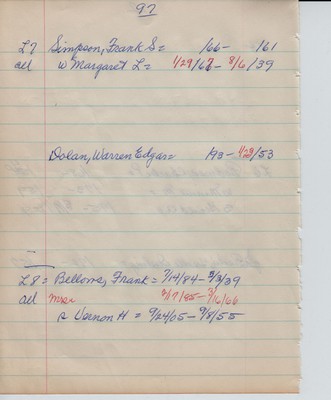 97
L7 Simpson, Frank S = /66 - /61
all w Margaret L = 4/29/67 - 8/6/39
Dolan, Warren Edgar = /93 - 4/28/53
L8 = Bellows, Frank = 7/14/84 - 3/3/39
all Mrs. 2/17/85 - 2/16/66
s Vernon H = 9/24/05 - 9/8/55